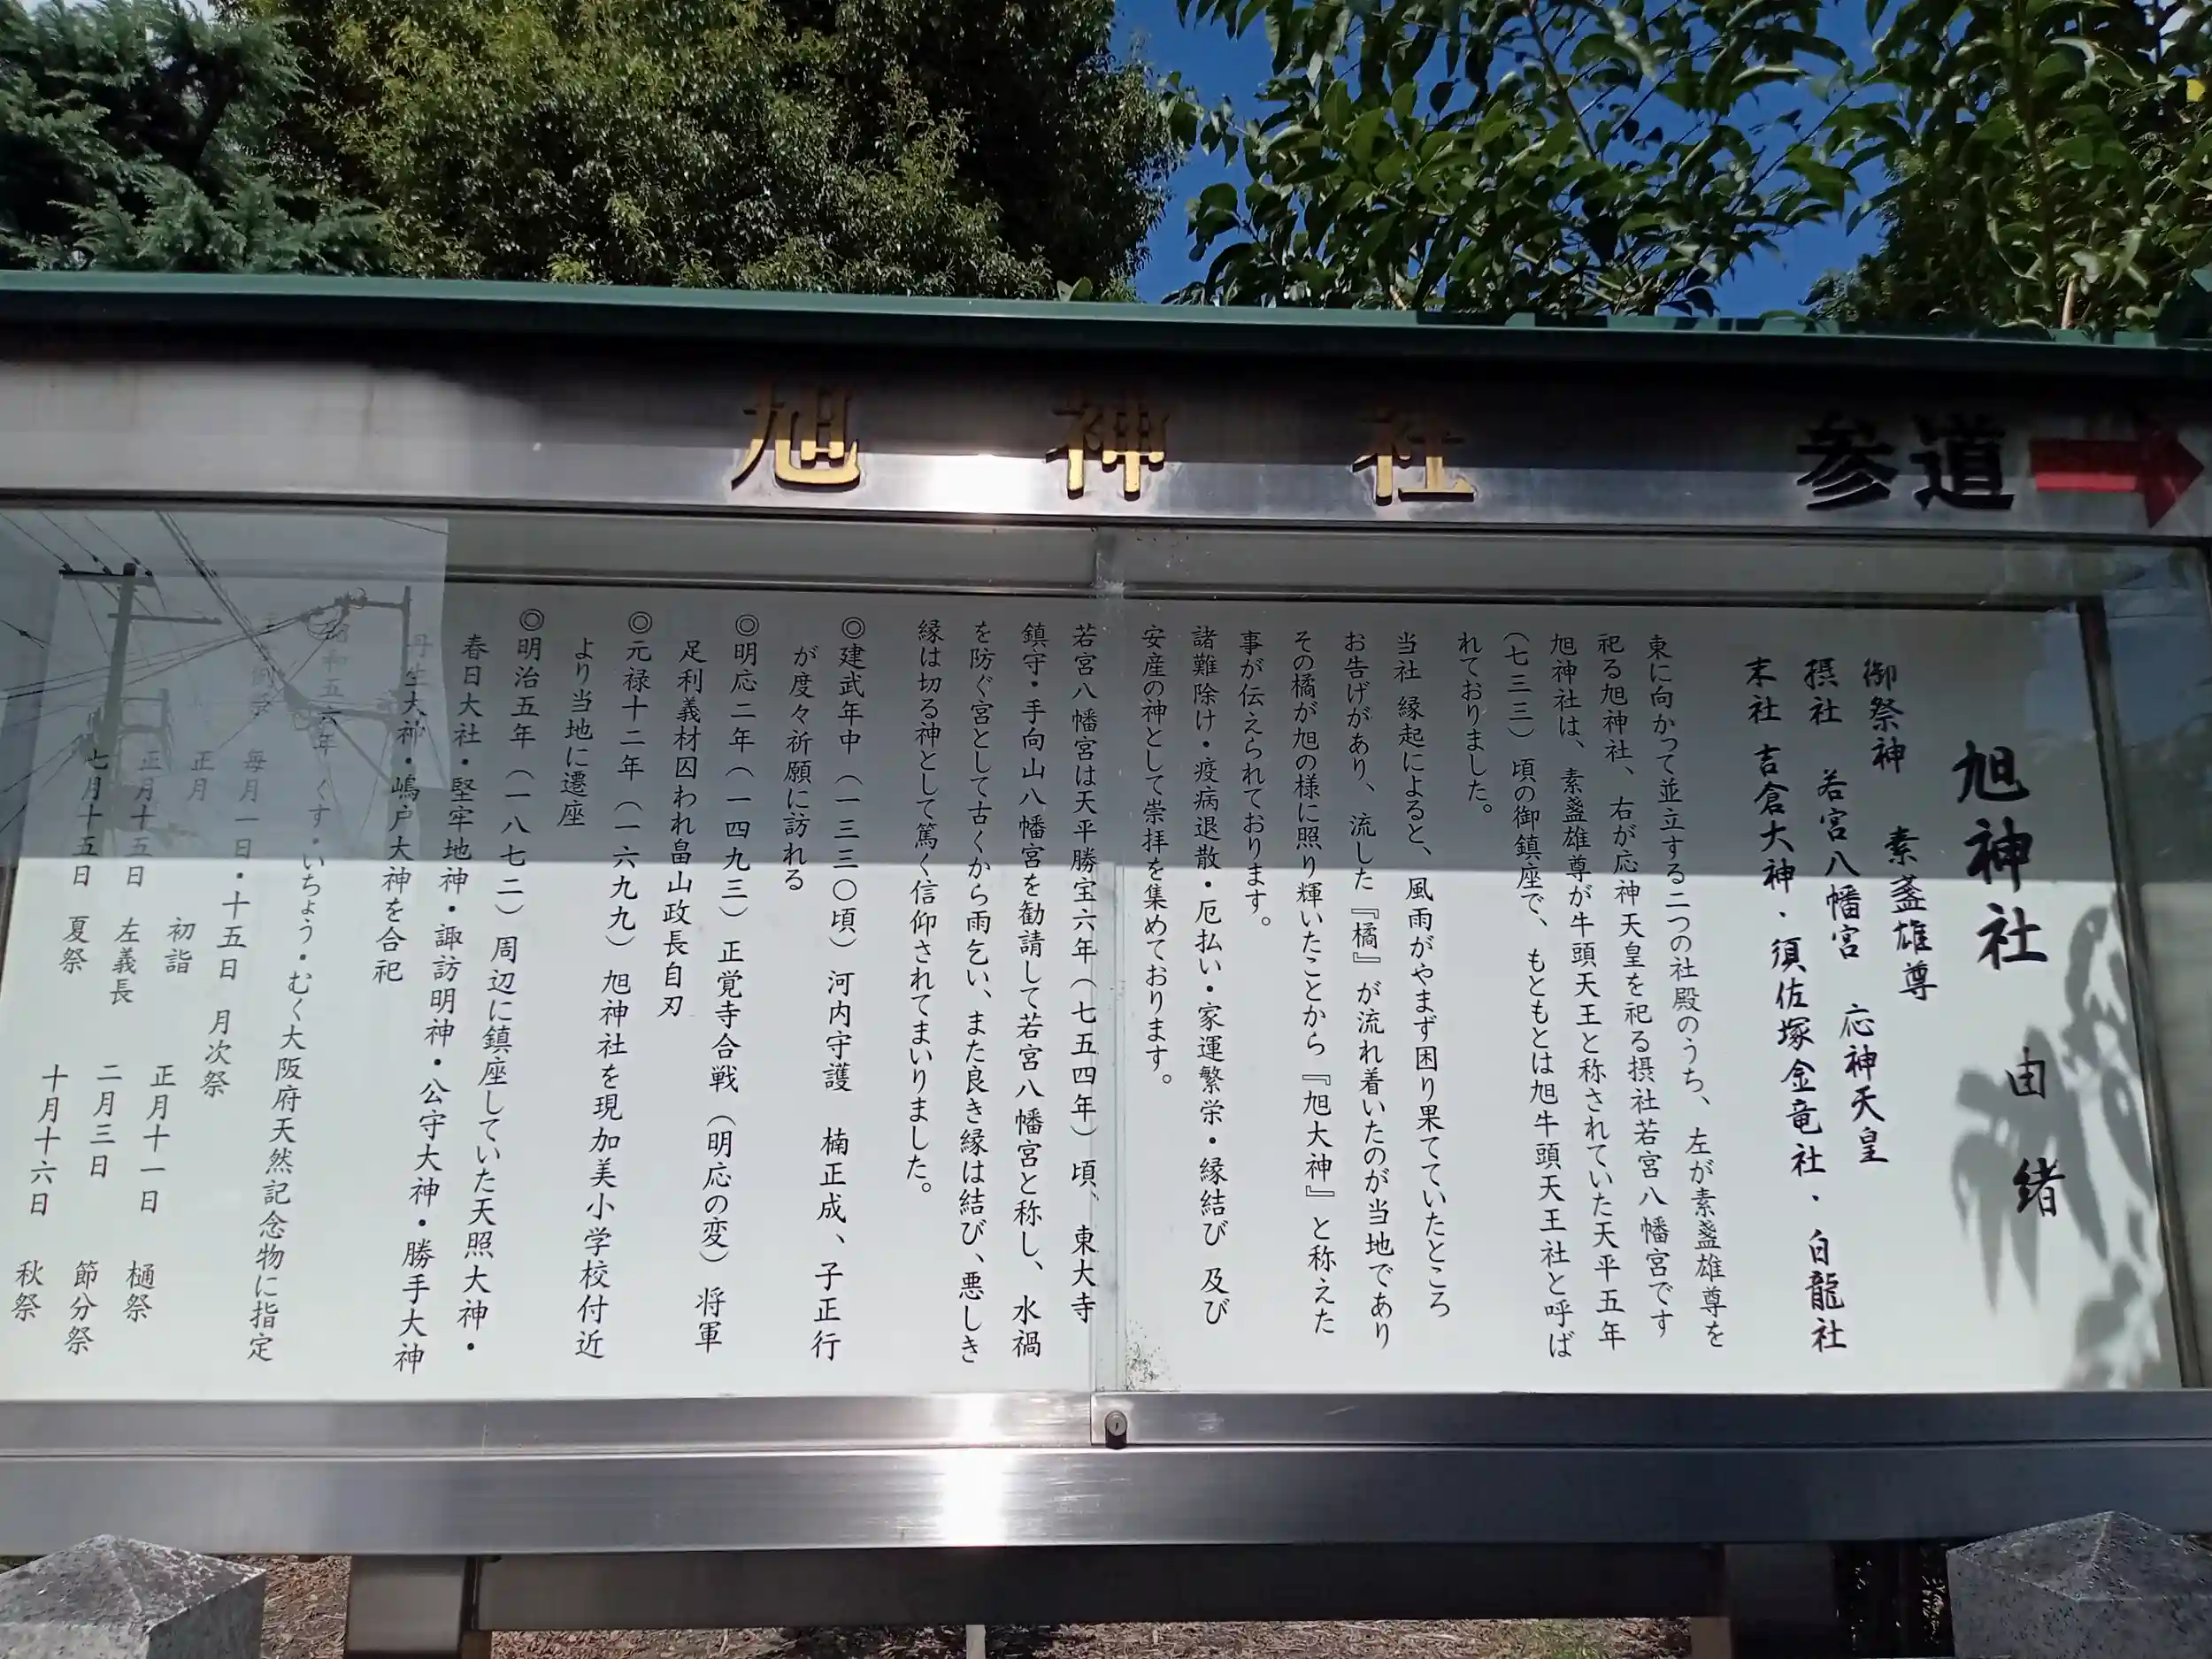 旭神社
参道
旭神社 由緒
御祭神 素盞雄尊
摂社 若宮八幡宮 応神天皇
末社 吉倉大神・須佐塚金竜社・白龍社
東に向かって並立する二つの社殿のうち、左が素盞雄尊を
祀る旭神社、右が応神天皇を祀る摂社若宮八幡宮です
旭神社は、素盞雄尊が牛頭天王と称されていた天平五年
(七三三)頃の御鎮座で、もともとは旭牛頭天王社と呼ば
れておりました。
当社 縁起によると、風雨がやまず困り果てていたところ
お告げがあり、流した『橘』が流れ着いたのが当地であり
その橘が旭の様に照り輝いたことから『旭大神』と称えた
事が伝えられております。
諸難除け・疫病退散・厄払い・家運繁栄・縁結び 及び
安産の神として崇拝を集めております。
若宮八幡宮は天平勝宝六年(七五四年)頃、東大寺
鎮守・手向山八幡宮を勧請して若宮八幡宮と称し、水禍
を防ぐ宮として古くから雨乞い、また良き縁は結び、悪しき
縁は切る神として篤く信仰されてまいりました。
◎建武年中(一三三〇頃)河内守護 楠正成、子正行
が度々祈願に訪れる
◎明応二年(一四九三)正覚寺合戦(明応の変)将軍
足利義材囚われ畠山政長自刃
◎元禄十二年(一六九九)旭神社を現加美小学校付近
より当地に遷座
◎明治五年(一八七二)周辺に鎮座していた天照大神・
春日大社・堅牢地神・諏訪明神・公守大神・勝手大神
丹生大神・嶋戸大神を合祀
昭和五六年 くす・いちょう・むく大阪府天然記念物に指定
例祭 毎月一日・十五日 月次祭
正月 初詣 正月十一日 樋祭
正月十五日 左義長 二月三日 節分祭
七月十五日 夏祭 十月十六日 秋祭